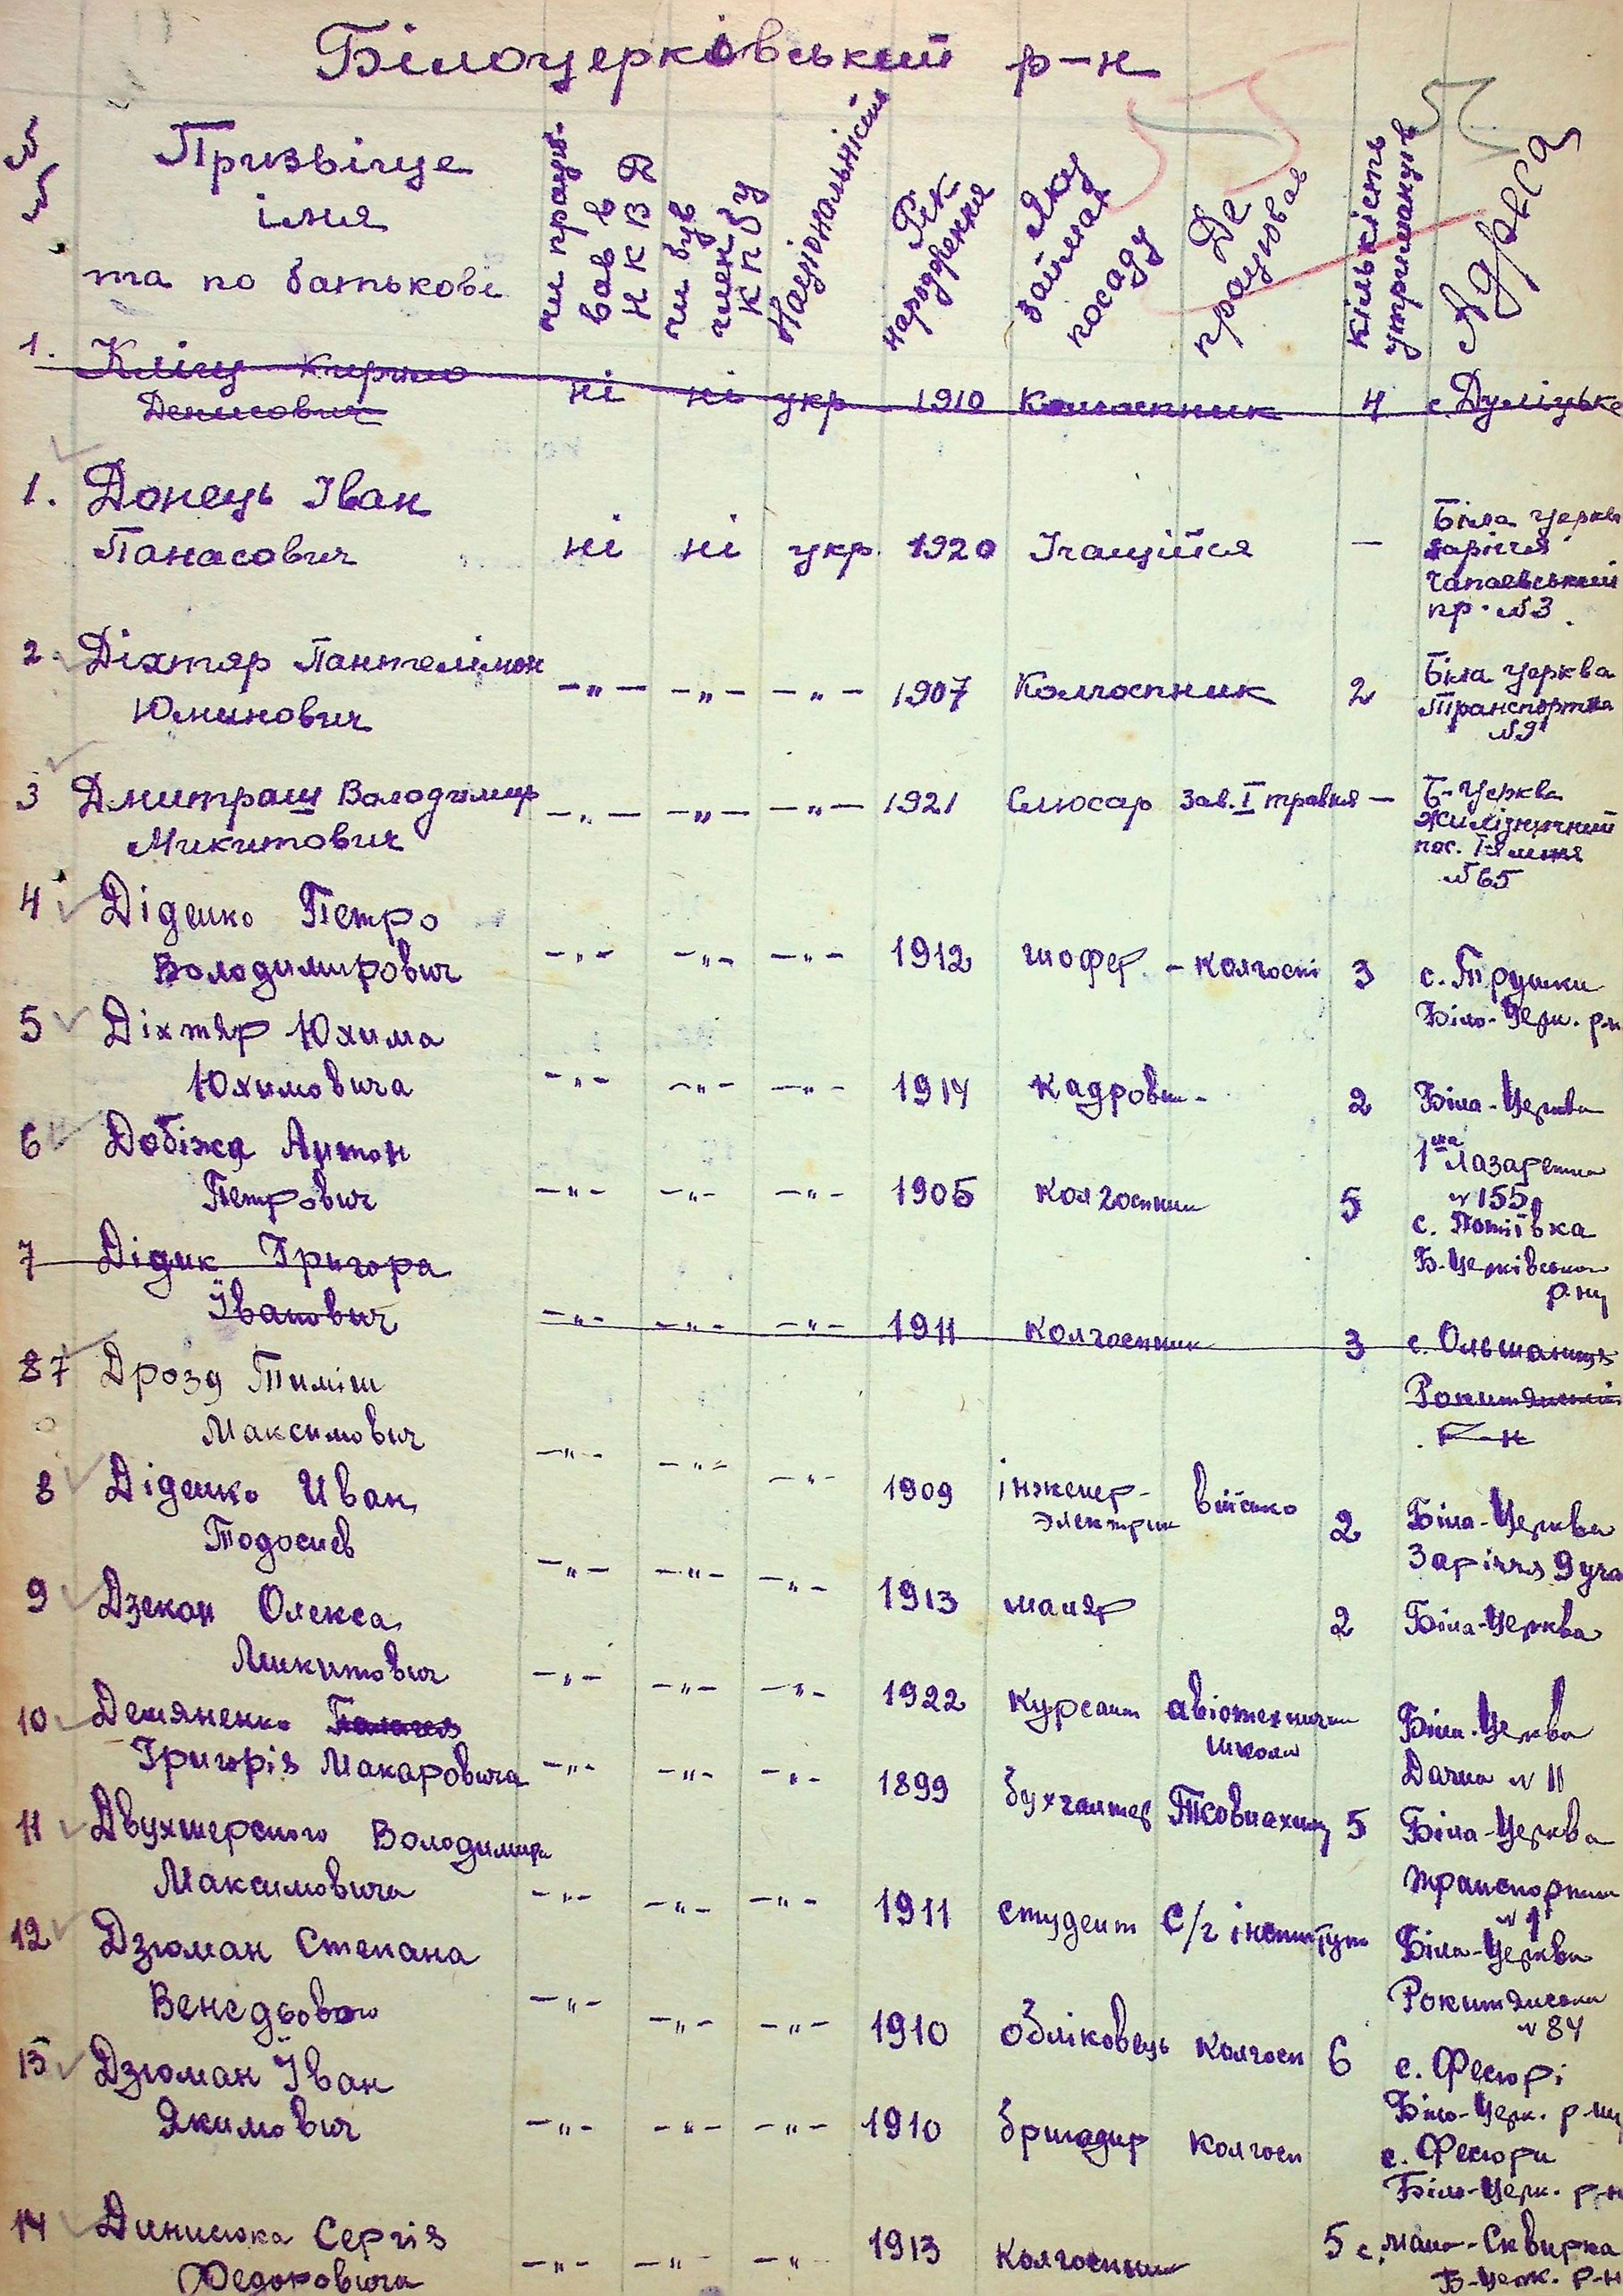 Білоцерківський р-н
№№
Призвіще
імя
та по батькові
чи працю-
вав в
НКВД
чи був
член
КПбУ
Національність
Рік
народження
Яку
займав
посаду
Де
працював
Кількість
утриманців
Адреса
1. Кліщ Кирило
Денисович ні ні укр 1910 Колгоспник 4 с. Дуліцьке
1. Донець Іван
Панасович ні ні укр. 1920 —
Біла Церква
заріччя
Чапаевський
пр. №3.
2. Діхтяр Пантелімон
Юминович -"- -"- -"- 1907 Колгоспник 2
Біла Церква
Транспортна
№9
3 Дмитраш Володимир
Микитович -"- -"- -"- 1921 Слюсар Зав. І травня —
Б-Церква
пос.
№65
4 Діденко Петро
Володимирович -"- -"- -"- 1912 шофер - колгосп 3 с. Трушки
Біло-Церк. р-н
5 Діхтяр Юхима
Юхимовича -"- -"- -"- 1914 Кадровик- 2 Біла-Церква
1ша Лазаретна
№155
6 Добіжа Антон
Петрович -"- -"- -"- 1905 Колгоспник 5
с. Потіївка
Б.Церківського
р-ну
7 Дідик Григора
Іванович -"- -"- -"- 1911 Колгоспник 3 с. Ольшаниця
Р-н
87 Дрозд Тиміш
Максимович -"- -"- -"- 1909 інженер-
электрик військо 2 Біла-Церква
Заріччя 9
8 Діденко Иван
Тодосиєв -"- -"- -"- 1913 маляр 2 Біла-Церква
9 Дзекан Олекса
Микитович -"- -"- -"- 1922 Курсант авіотехнични
школи Біла-Церква
Дачна №11
10 Демяненко
Григорія Макаровича -"- -"- -"- 1899 бухгалтер 5 Біла-Церква
транспортна
№1
11 Двухшерсного Володимира
Максимовича -"- -"- -"- 1911 студент С/г інститут Біла-Церква
Рокитянська
№84
12 Дзюман Степана
-"- -"- -"- 1910 обліковець Колгосп 6 с. Фесюрі
Біло-Церк. р-ну
13 Дзюман Іван
Якимович -"- -"- -"- 1910 бригадир Колгосп
с. Фесюри
Біло-Церк. р-н
14 Динисюка Сергія
Федоровича -"- -"- -"- 1913 Колгоспник 5 с. мало-Сквирка
Б-Церк. р-н